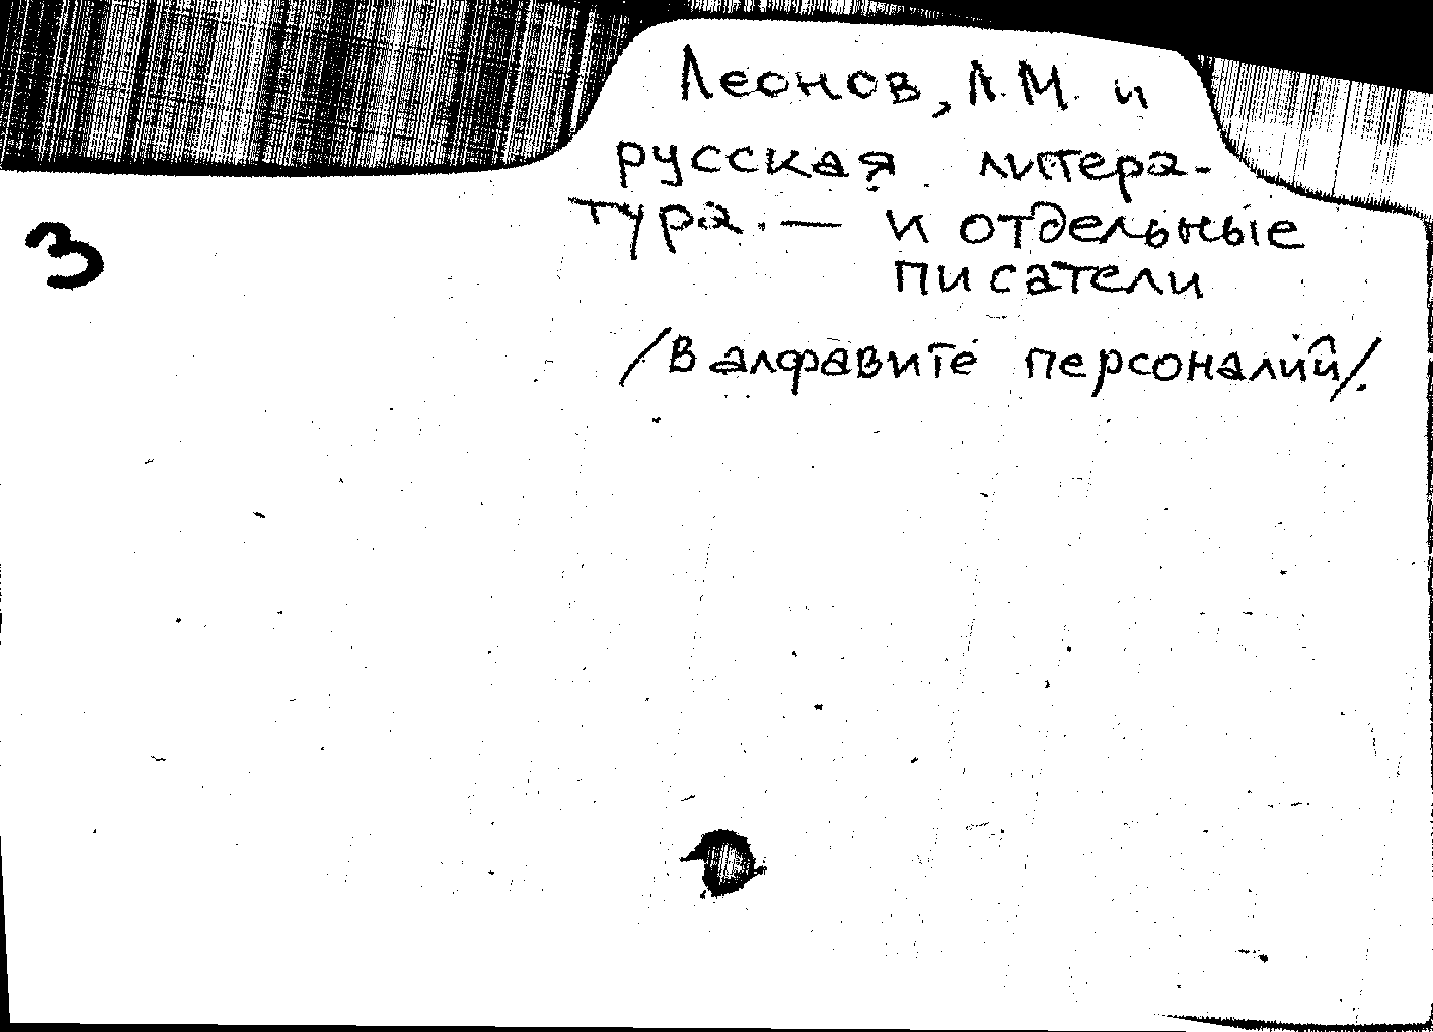 Леонов, Л.М. и
русская литера-
тура. — и отдельные
писатели
/В алфавите персоналий/.
3